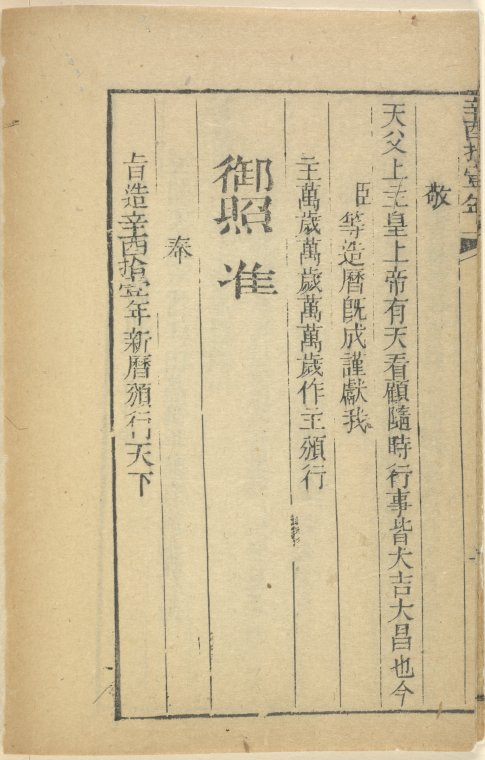 辛酉拾壹年
敬
天父上主皇上帝有天看顧隨時行事皆大吉大昌也今
臣等造曆既成謹獻我
主萬歲萬歲萬萬歲作主頒行
御照准
奉
旨造辛酉拾壹年新曆頒行天下